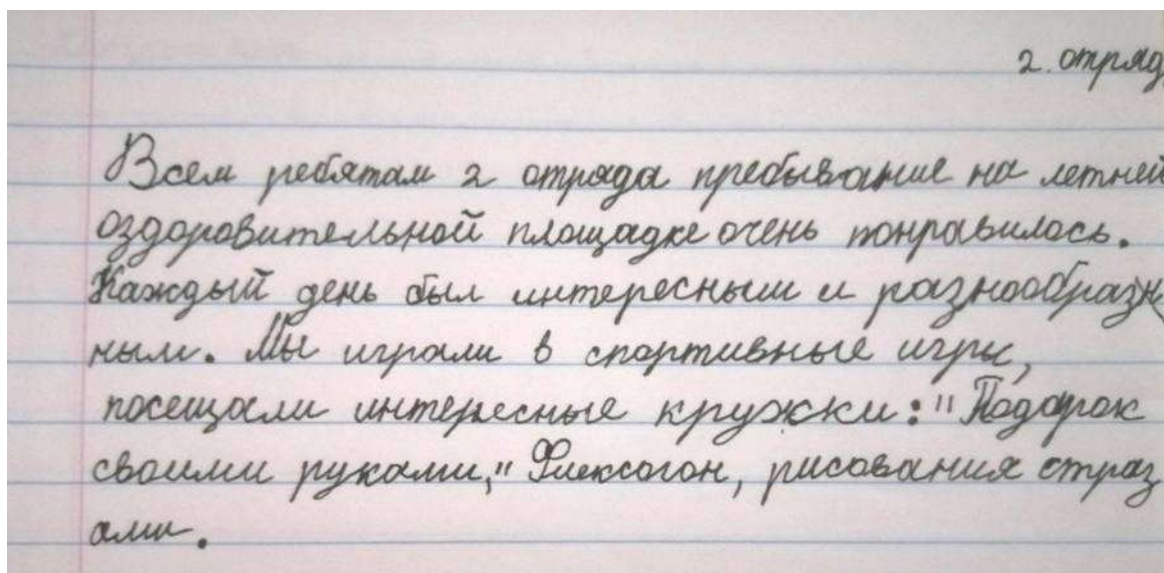 2. отряд
Всем ребятам 2 отряда пребывание на летней
оздоровительной площадке очень понравилось.
Каждый день был интересным и разнообразн
ным. Мы играли в спортивные игры,
посещали интересные кружки: "Подарок
своими руками," Флексогон, рисования страз
ами.